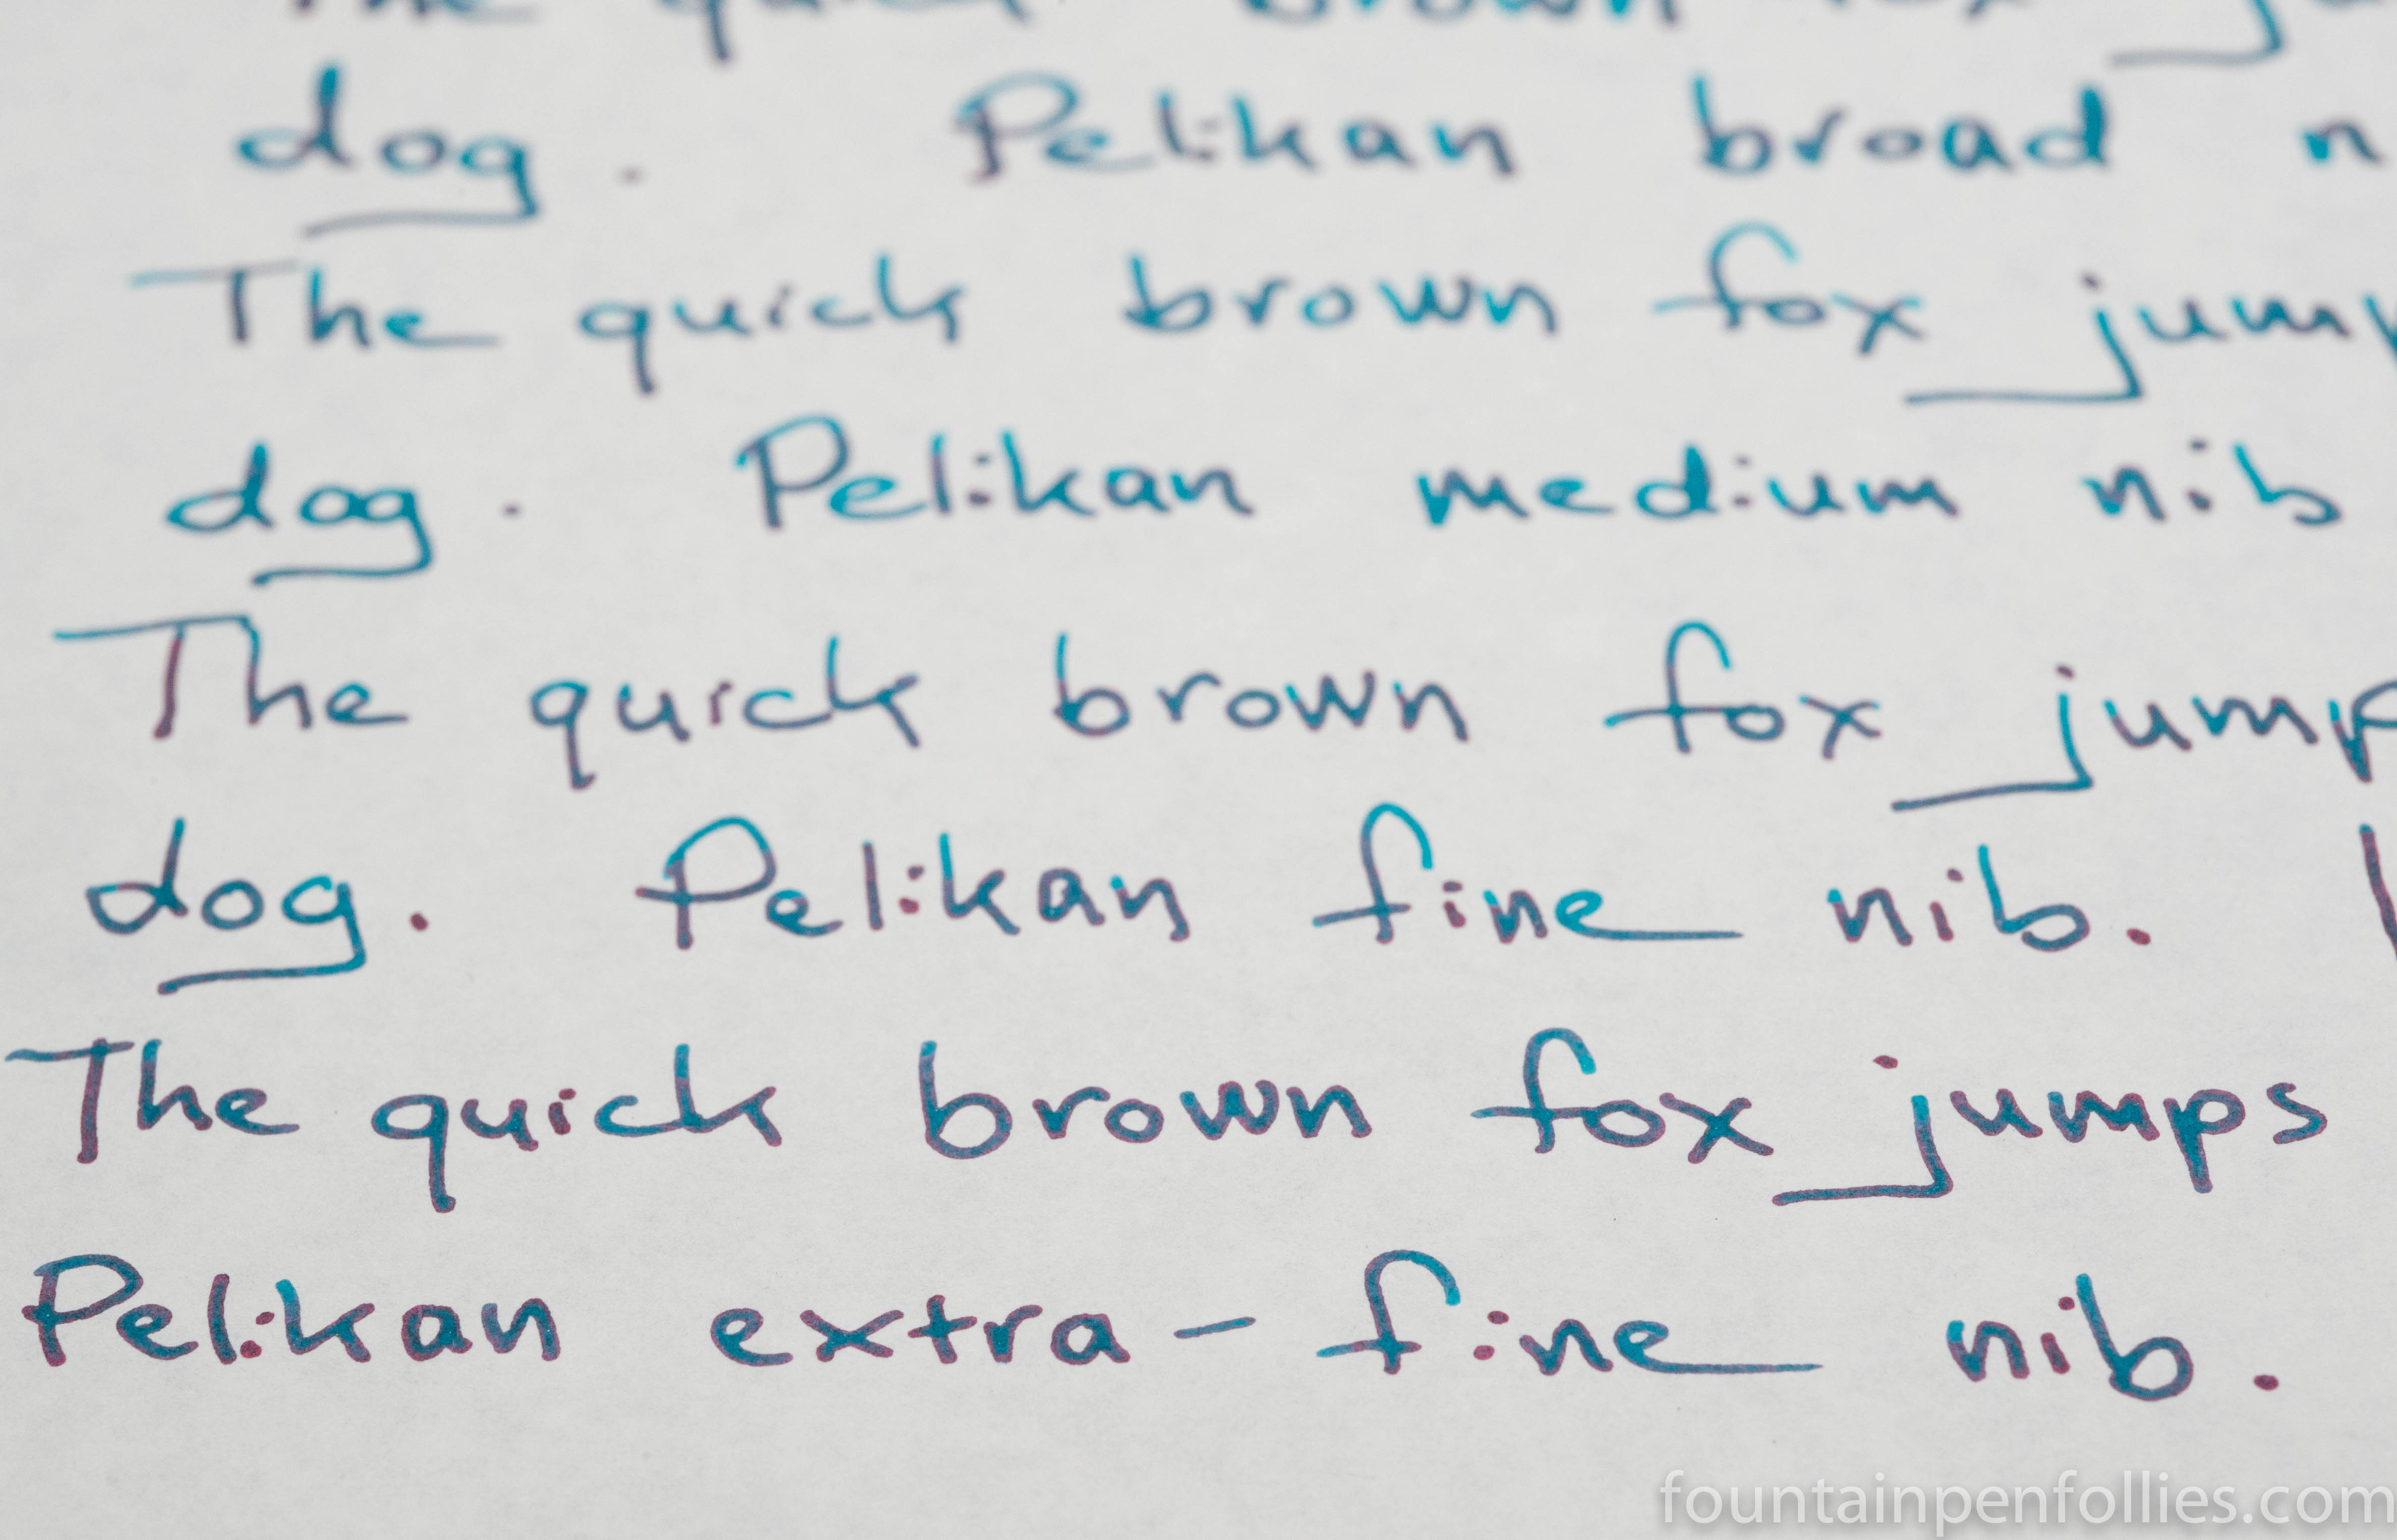 The quick brown fox
dog. Pelikan broad
The quick brown fox jump
dog. Pelikan medium nib
The quick brown fox jump
dog. Pelikan fine nib.
The quick brown fox jumps
Pelikan extra-fine nib.
fountainpenfollies.com